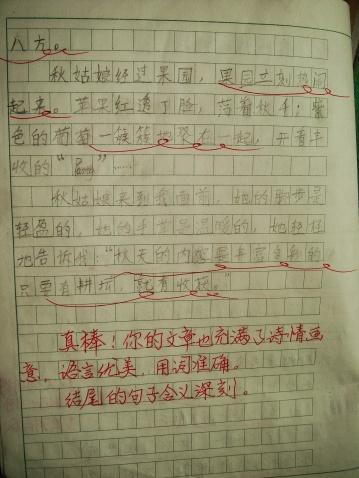 八方。
秋姑娘经过果园，果园立刻热闹
起来。苹果红透了脸，荡着秋千；紫
色的葡萄一簇簇地聚在一起，开着丰
收的“Party”……
秋姑娘来到我面前，她的脚步是
轻盈的，她的手是温暖的，她轻轻
地告诉我：“秋天的内容要丰富多彩的
只要有耕坛，就有收获。”
真棒！你的文章也充满了诗情画
意，语言优美，用词准确。
结尾的句子含义深刻。